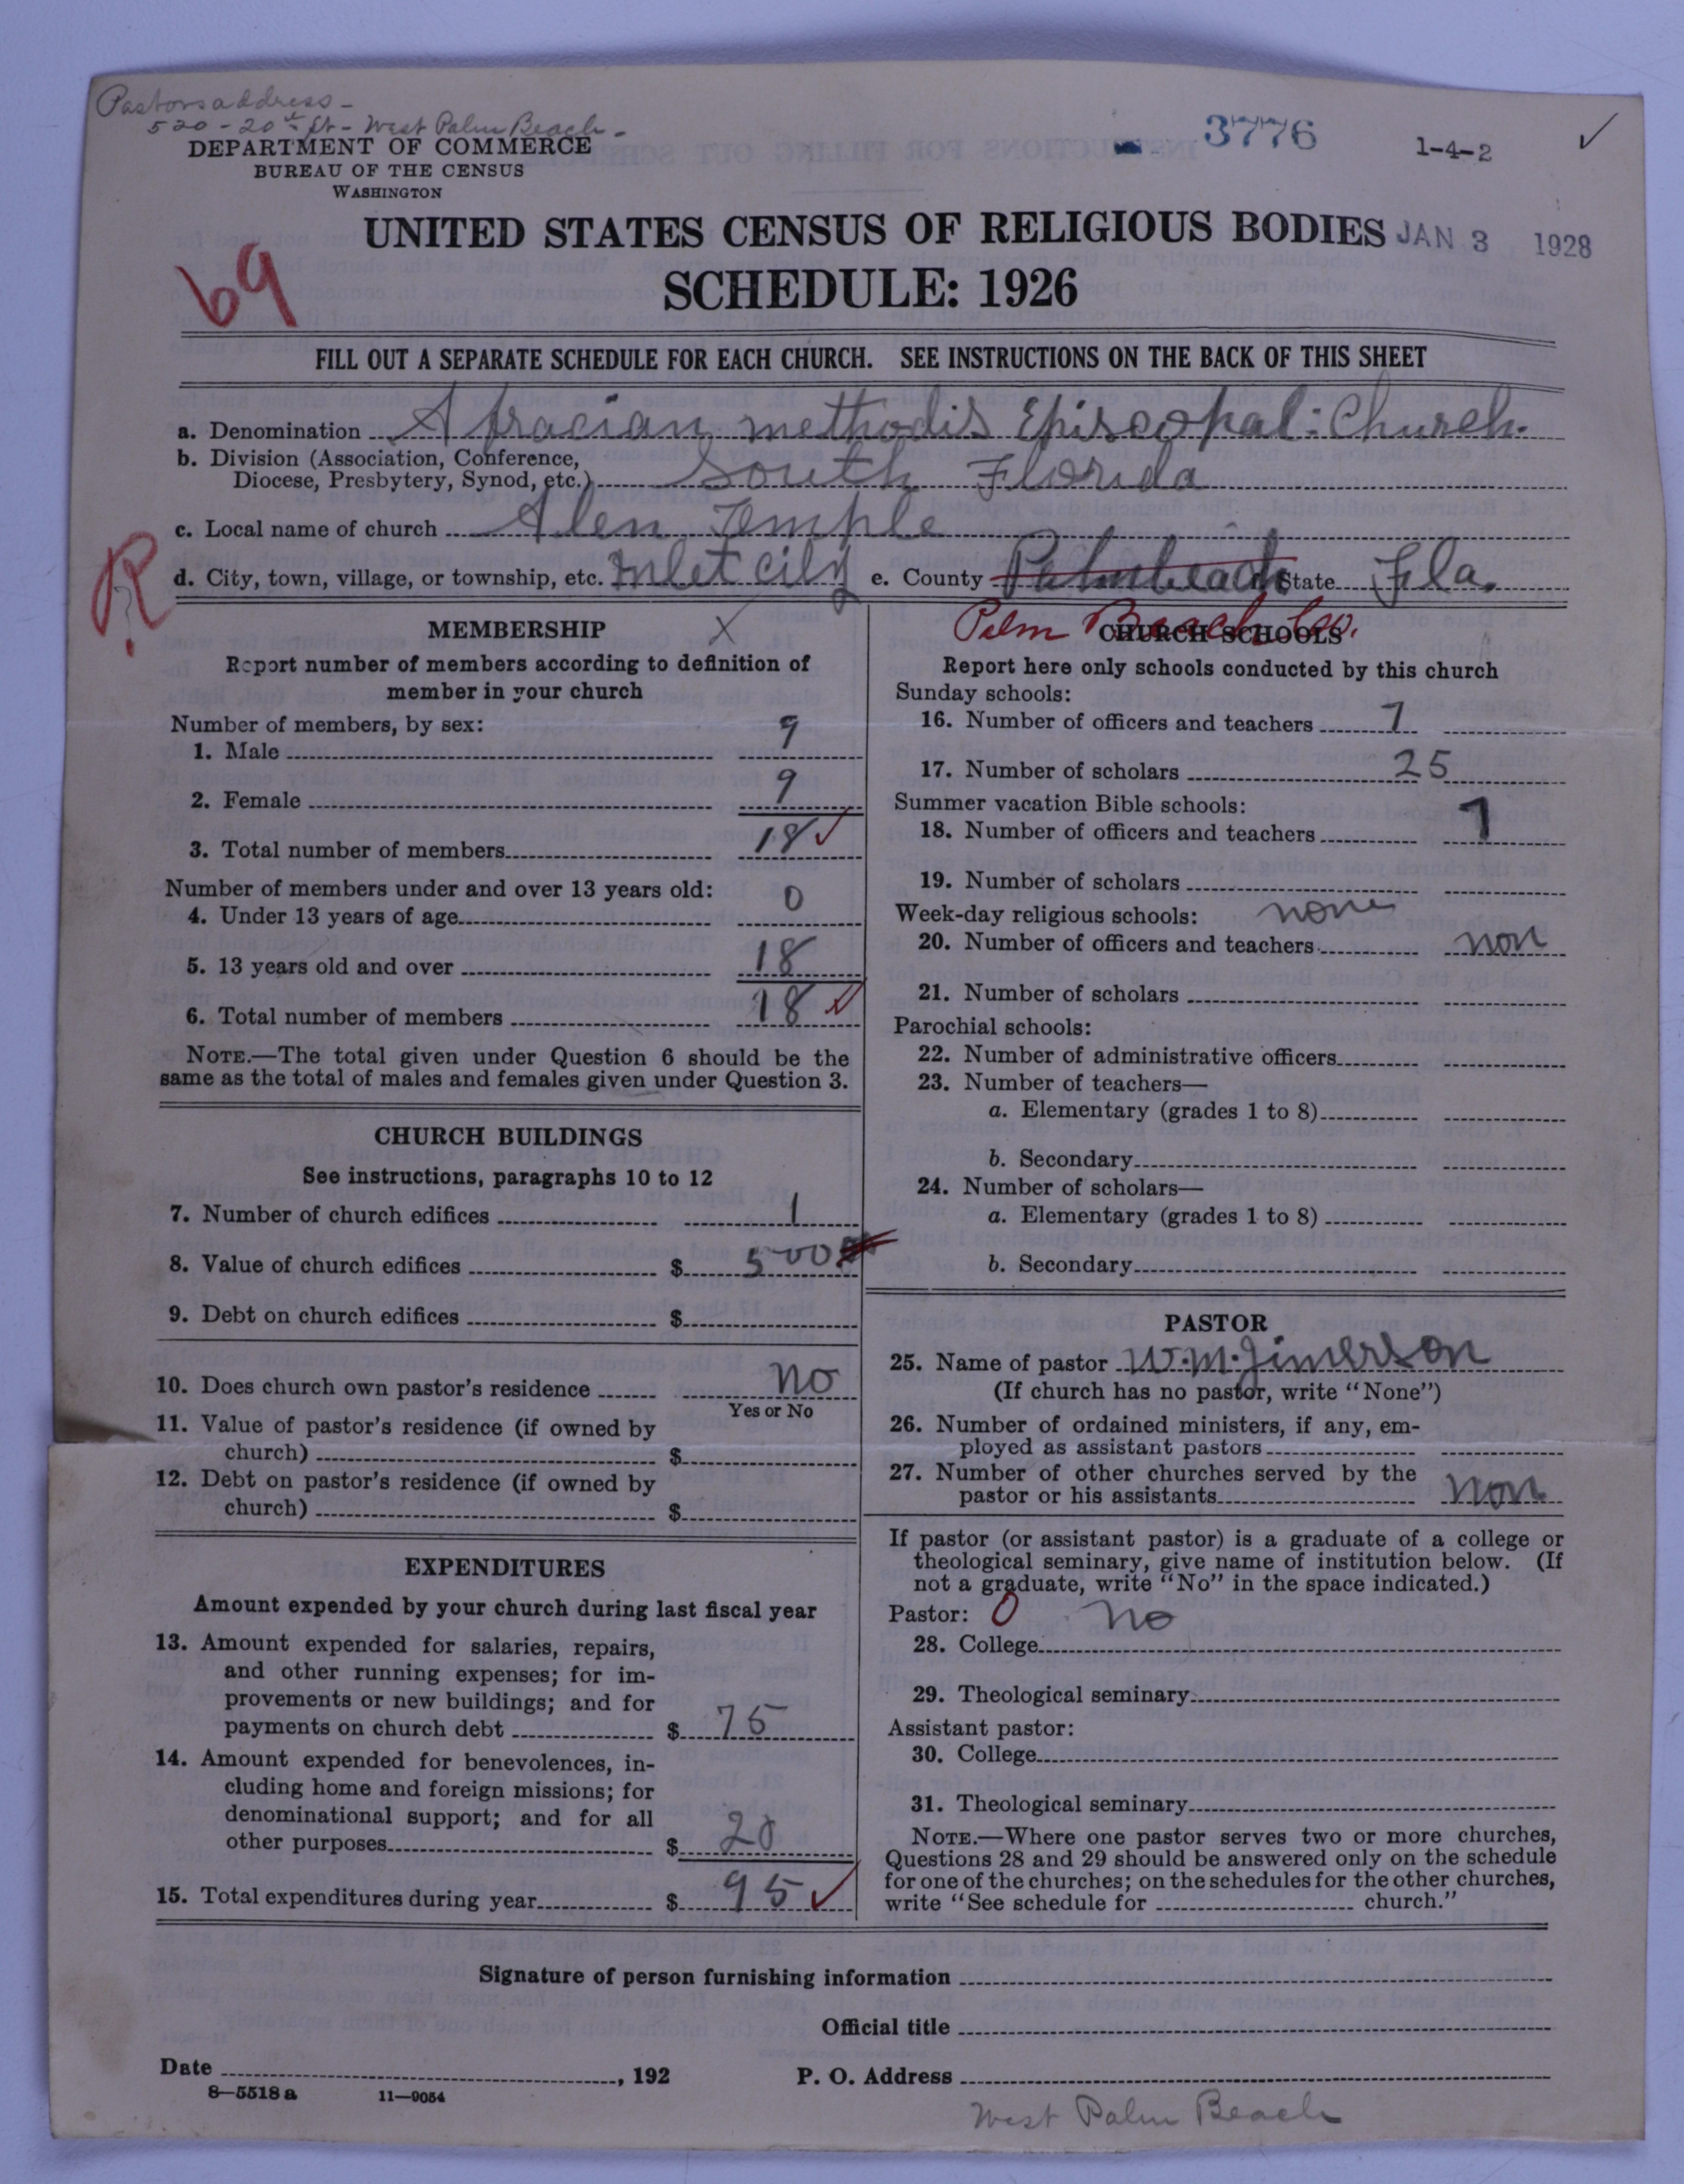 Pastors address -
520 - 20th St - West Palm Beach -
DEPARTMENT OF COMMERCE
BUREAU OF THE CENSUS
WASHINGTON
3776
1-4-2
UNITED STATES CENSUS OF RELIGIOUS BODIES
JAN 3 1928
SCHEDULE: 1926
69
FILL OUT A SEPARATE SCHEDULE FOR EACH CHURCH. SEE INSTRUCTIONS ON THE BACK OF THIS SHEET
a. Denomination Afracian methodis Episcopal: Church.
b. Division (Association, Conference,
Diocese, Presbytery, Synod, etc.) South Florida
c. Local name of church Alen Temple
R
d. City, town, village, or township, etc. Inlet city e. County Palmbeach State Fla.
Palm Beach Co.
MEMBERSHIP X
Report number of members according to definition of
member in your church
Number of members, by sex:
1. Male 9
2. Female 9
3. Total number of members 18
Number of members under and over 13 years old:
4. Under 13 years of age 0
5. 13 years old and over 18
6. Total number of members 18
NOTE.—The total given under Question 6 should be the
same as the total of males and females given under Question 3.
CHURCH BUILDINGS
See instructions, paragraphs 10 to 12
7. Number of church edifices 1
8. Value of church edifices $ 500
9. Debt on church edifices $
10. Does church own pastor's residence no
Yes or No
11. Value of pastor's residence (if owned by
church) $
12. Debt on pastor's residence (if owned by
church) $
EXPENDITURES
Amount expended by your church during last fiscal year
13. Amount expended for salaries, repairs,
and other running expenses; for im-
provements or new buildings; and for
payments on church debt $ 75
14. Amount expended for benevolences, in-
cluding home and foreign missions; for
denominational support; and for all
other purposes $ 20
15. Total expenditures during year $ 95
CHURCH SCHOOLS
Report here only schools conducted by this church
Sunday schools:
16. Number of officers and teachers 7
17. Number of scholars 25
Summer vacation Bible schools:
18. Number of officers and teachers 7
19. Number of scholars
Week-day religious schools: none
20. Number of officers and teachers non
21. Number of scholars
Parochial schools:
22. Number of administrative officers
23. Number of teachers—
a. Elementary (grades 1 to 8)
b. Secondary
24. Number of scholars—
a. Elementary (grades 1 to 8)
b. Secondary
PASTOR
25. Name of pastor W.M. Jimerson
(If church has no pastor, write "None")
26. Number of ordained ministers, if any, em-
ployed as assistant pastors
27. Number of other churches served by the
pastor or his assistants non
If pastor (or assistant pastor) is a graduate of a college or
theological seminary, give name of institution below. (If
not a graduate, write "No" in the space indicated.)
Pastor: 0 no
28. College
29. Theological seminary
Assistant pastor:
30. College
31. Theological seminary
NOTE.—Where one pastor serves two or more churches,
Questions 28 and 29 should be answered only on the schedule
for one of the churches; on the schedules for the other churches,
write "See schedule for church."
Signature of person furnishing information
Official title
Date , 192 P. O. Address
8—5518 a 11—9054
West Palm Beach